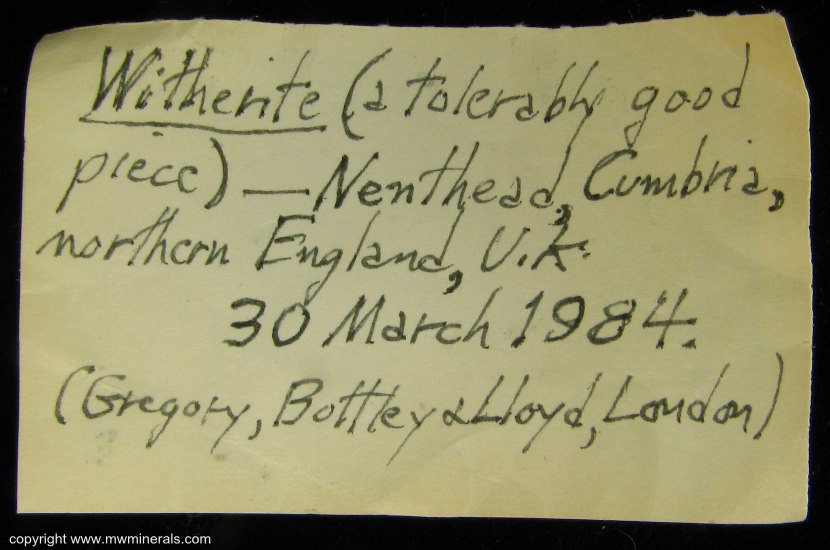 Witherite (a tolerably good
piece) — Nenthead, Cumbria,
northern England, U.K.
30 March 1984.
(Gregory, Bottley & Lloyd, London)
copyright www.mwminerals.com